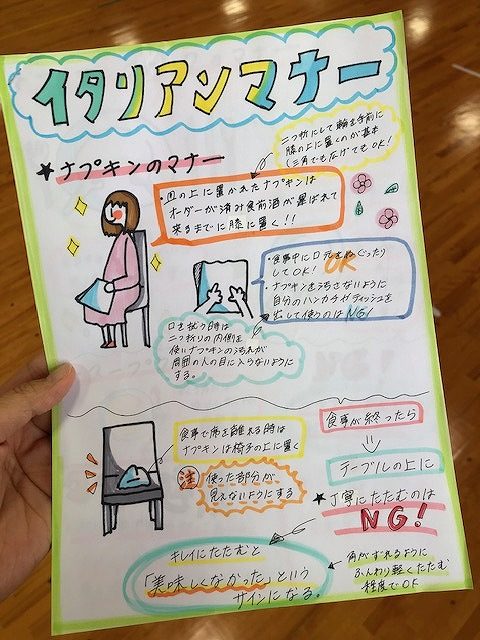 イタリアンマナー
★ナプキンのマナー
二つ折にして輪を手前に
膝の上に置くのが基本
(三角でも広げてもOK!
・皿の上に置かれたナプキンは
オーダーが済み食前酒が運ばれて
来るまでに膝に置く!!
・食事中に口元をぬぐったり
してOK! OK
・ナプキンを汚さないように
自分のハンカチやティッシュを
出して使うのはNG!
口を拭う時は
二つ折りの内側を
使いナプキンの汚れが
周囲の人の目に入らないように
する。
食事で席を離れる時は
ナプキンは椅子の上に置く
注 使った部分が
見えないようにする
食事が終ったら
テーブルの上に
★丁寧にたたむのは
NG!
キレイにたたむと
「美味しくなかった」という
サインになる。
角がずれるように
ふんわり軽くたたむ
程度でOK